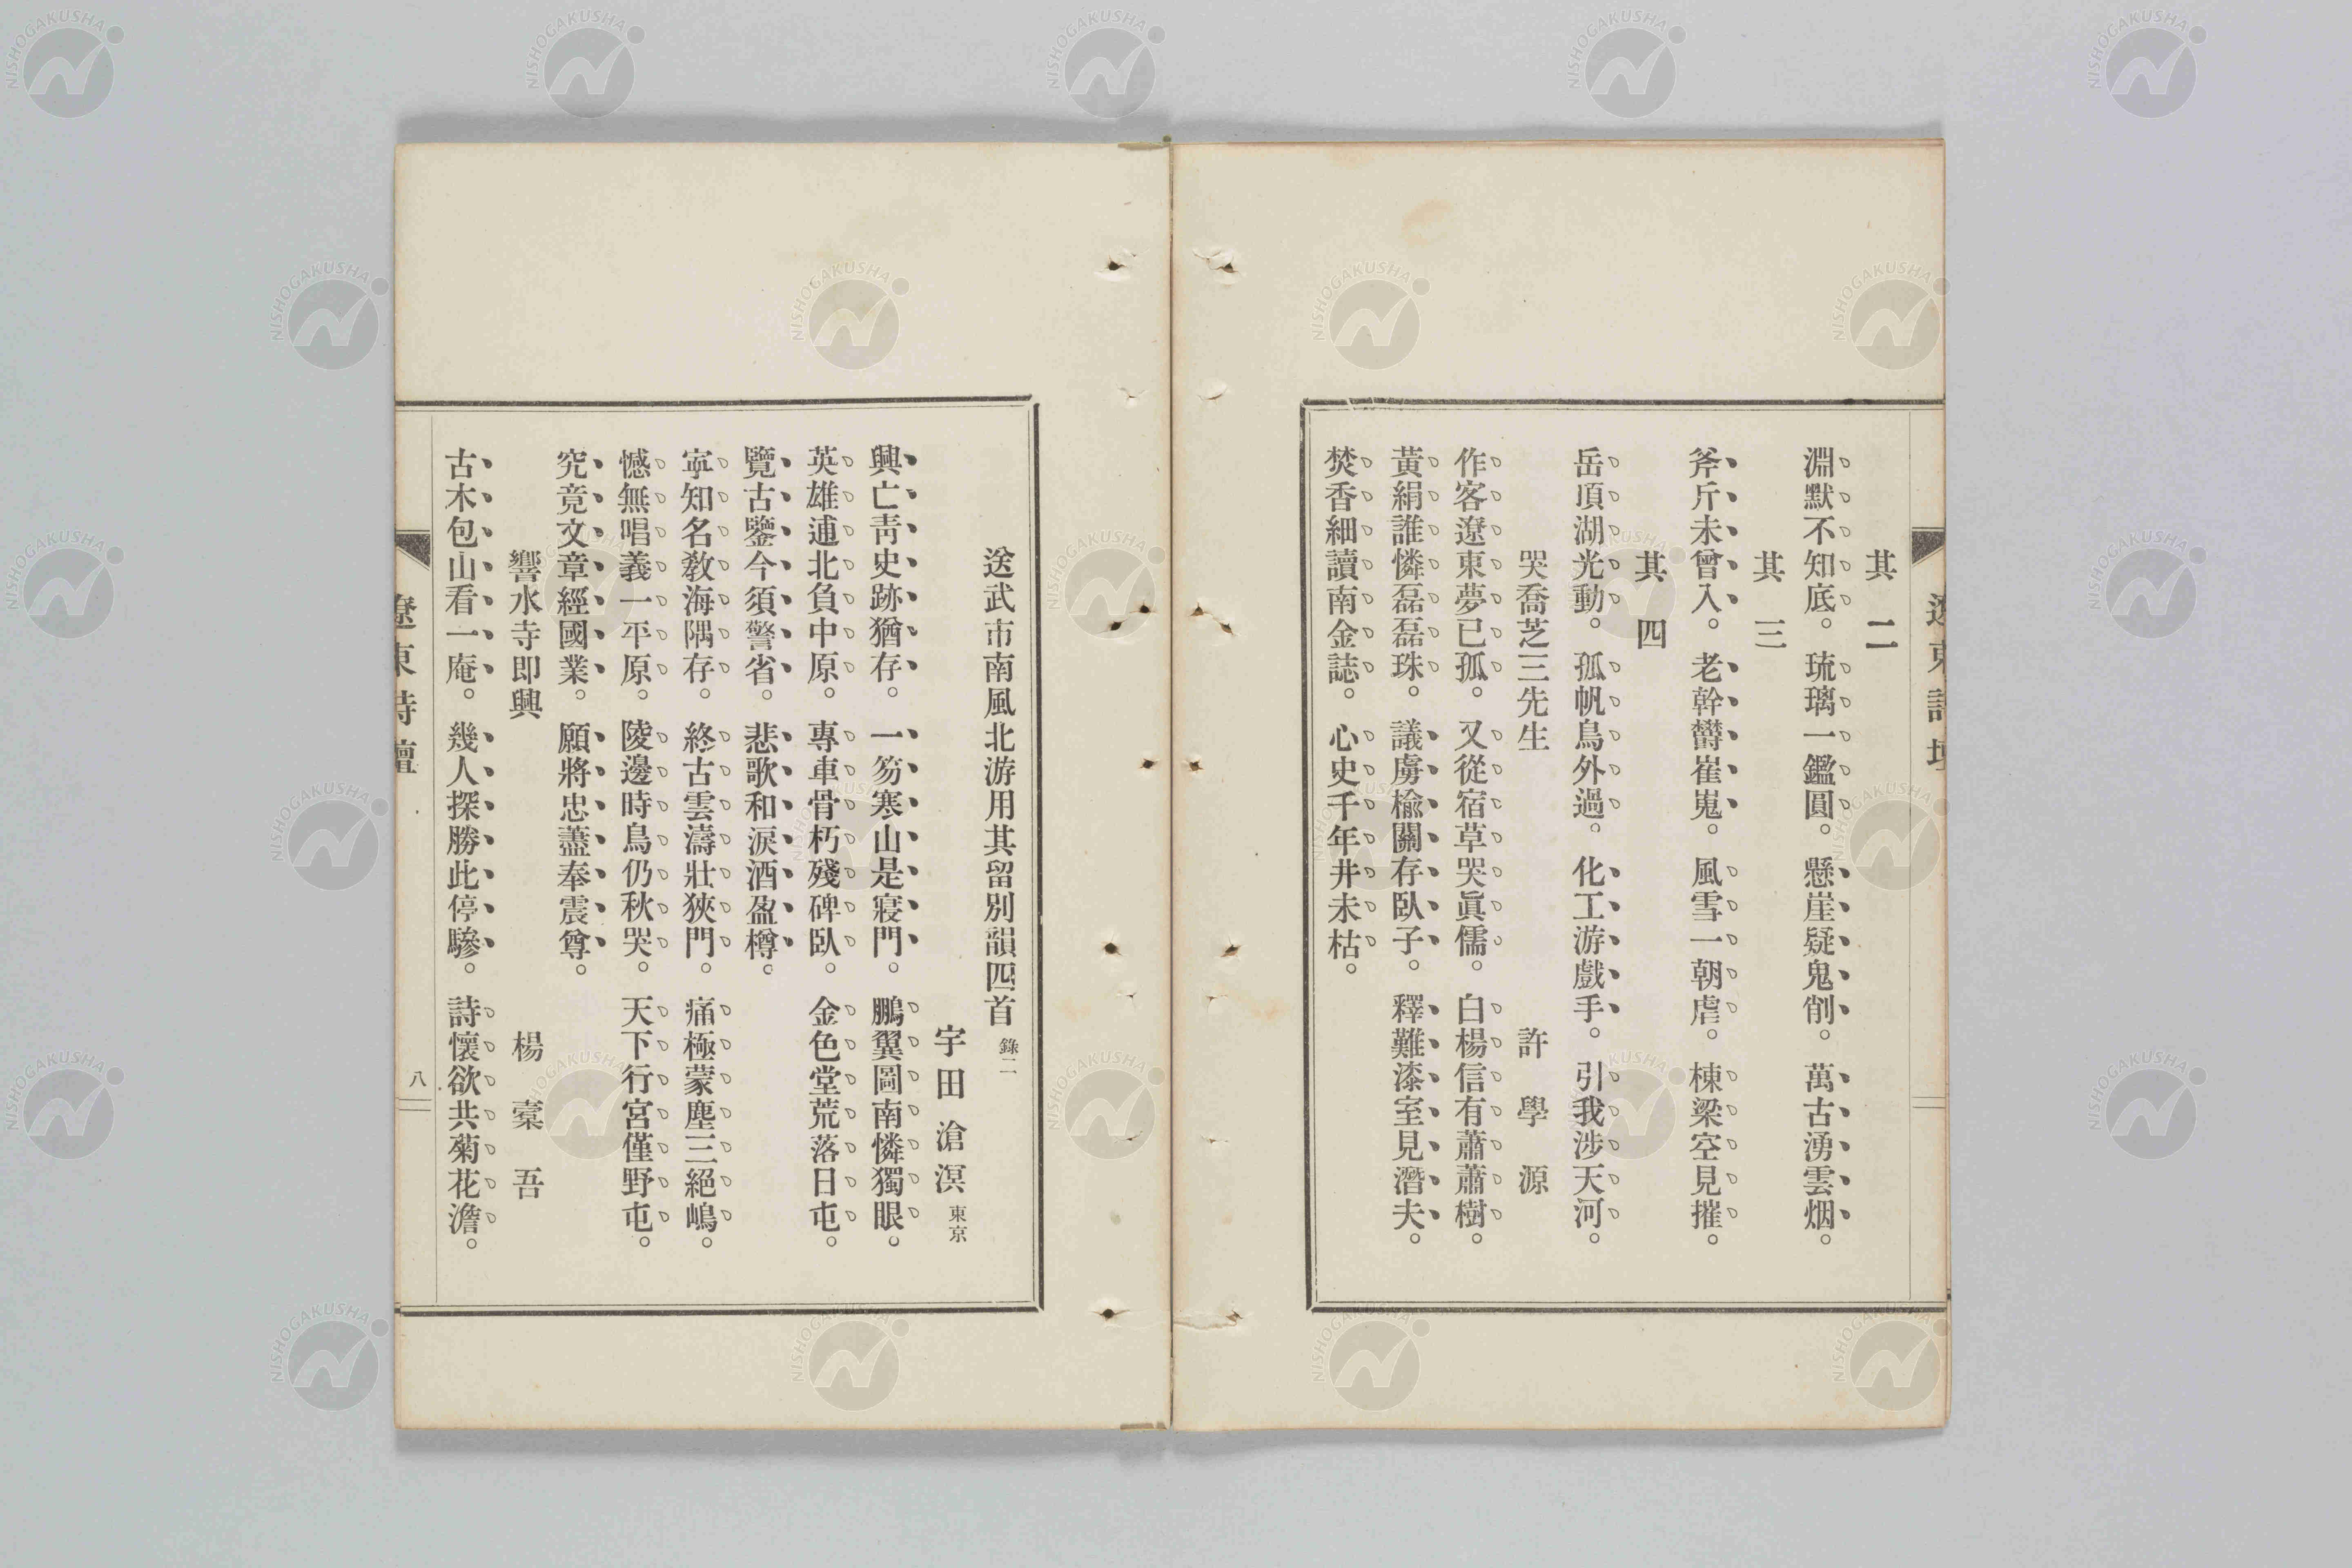 其二
淵默不知底。琉璃一鑑圓。懸崖疑鬼削。萬古湧雲烟。
其三
斧斤未曾入。老幹欝崔嵬。風雪一朝虐。棟梁空見摧。
其四
岳頂湖光動。孤帆鳥外過。化工游戲手。引我涉天河。
哭喬芝三先生 許學源
作客遼東夢已孤。又從宿草哭眞儒。白楊信有蕭蕭樹。
黃絹誰憐磊磊珠。議虜楡關存臥子。釋難漆室見潛夫。
焚香細讀南金誌。心史千年井未枯。
送武市南風北游用其留別韻四首 錄二
宇田滄溟 東京
興亡靑史跡猶存。一笏寒山是寢門。鵬翼圖南憐獨眼。
英雄逋北負中原。專車骨朽殘碑臥。金色堂荒落日屯。
覽古鑒今須警省。悲歌和淚酒盈樽。
寍知名敎海隅存。終古雲濤壯狹門。痛極蒙塵三絕嶋。
憾無唱義一平原。陵邊時鳥仍秋哭。天下行宮僅野屯。
究竟文章經國業。願將忠藎奉震尊。
響水寺即興 楊橐吾
古木包山看一庵。幾人探勝此停驂。詩懷欲共菊花澹。
遼東詩壇
八
NISHOGAKUSHA